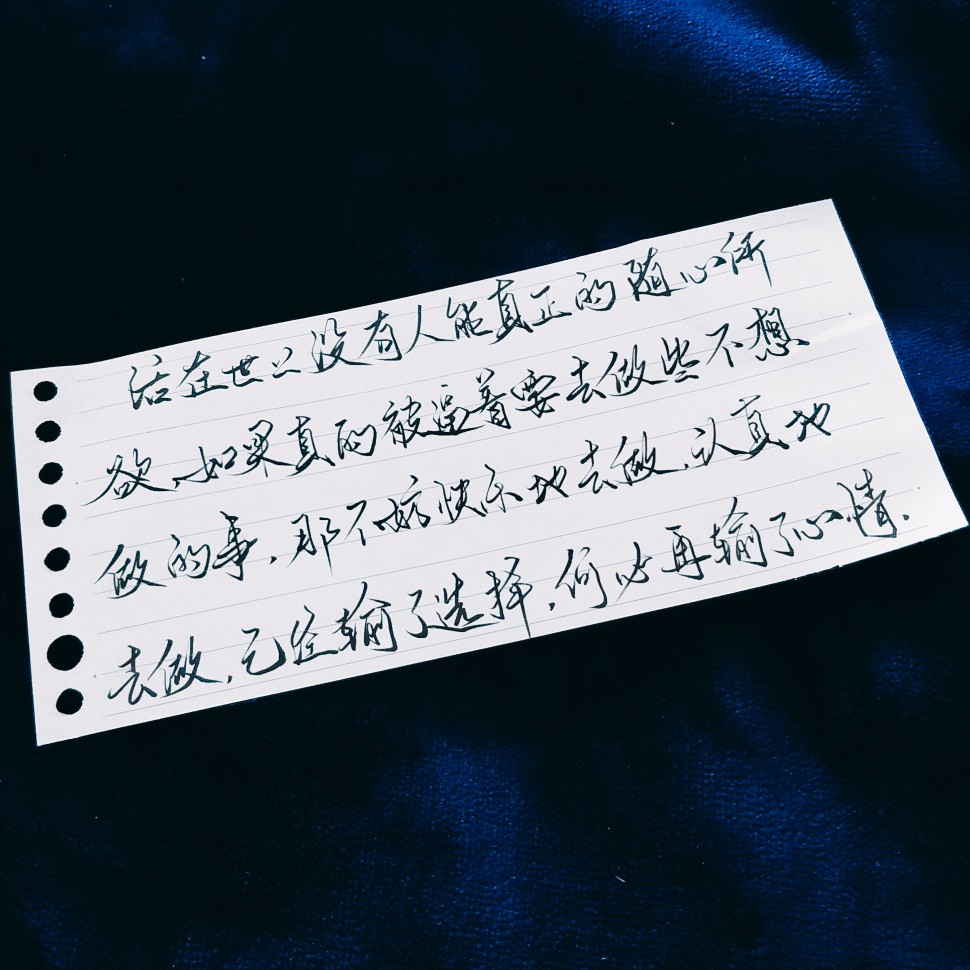 活在世上没有人能真正的随心所
欲、如果真的被逼着要去做些不想
做的事,那不妨快乐地去做,认真地
去做,已经输了选择,何必再输了心情.